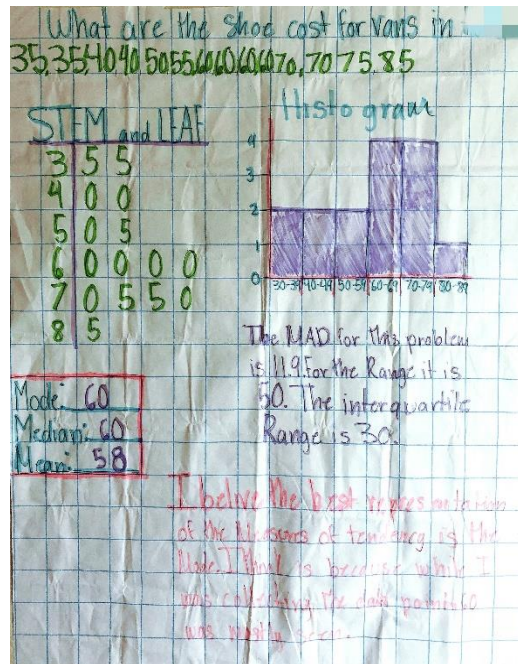 What are the shoe cost for vans in
35,35,40,40,50,55,60,60,60,60,70,70 75,85
STEM and LEAF
3 5 5
4 0 0
5 0 5
6 0 0 0 0
7 0 5 5 0
8 5
Histogram
4
3
2
1
0
30-39 40-49 50-59 60-69 70-79 80-89
The MAD for this problem
is 11.9. For the Range it is
50. The interquartile
Range is 30.
Mode: 60
Median: 60
Mean: 58
I belive the best representation
of the Measures of tendency is the
Mode. I think is because while I
was collecting the data point 60
was mostly seen.